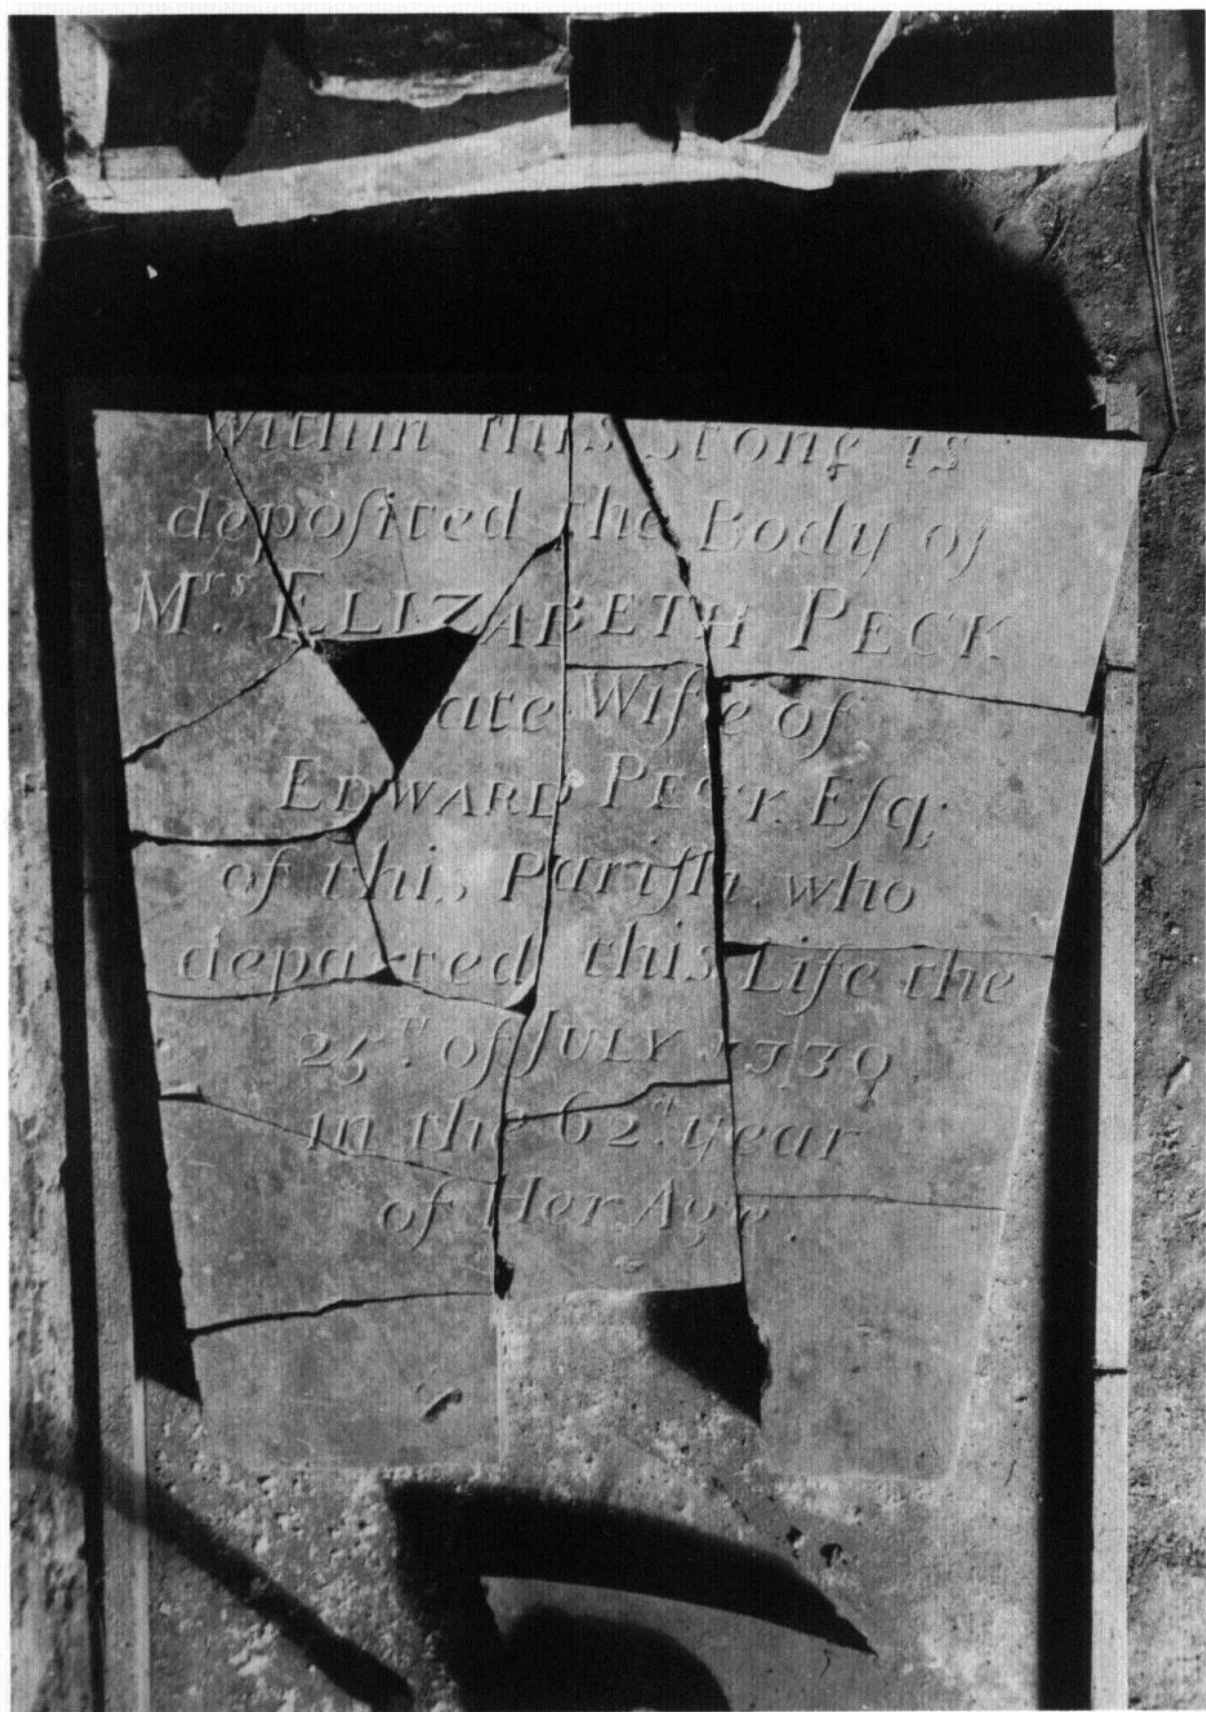 Within this Stone is
depoſited the Body of
Mrs. ELIZABETH PECK
ate Wife of
EDWARD PECK Eſq:
of this Pariſh who
departed this Life the
25th. of JULY 1739
in the 62d. year
of Her Age